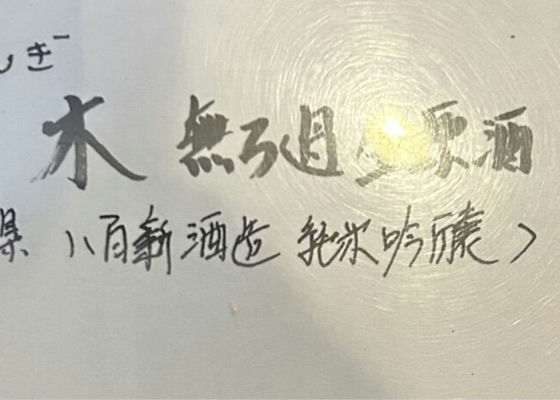 ぎ
木 無ろ過 原酒
県 八百新酒造 純米吟醸)